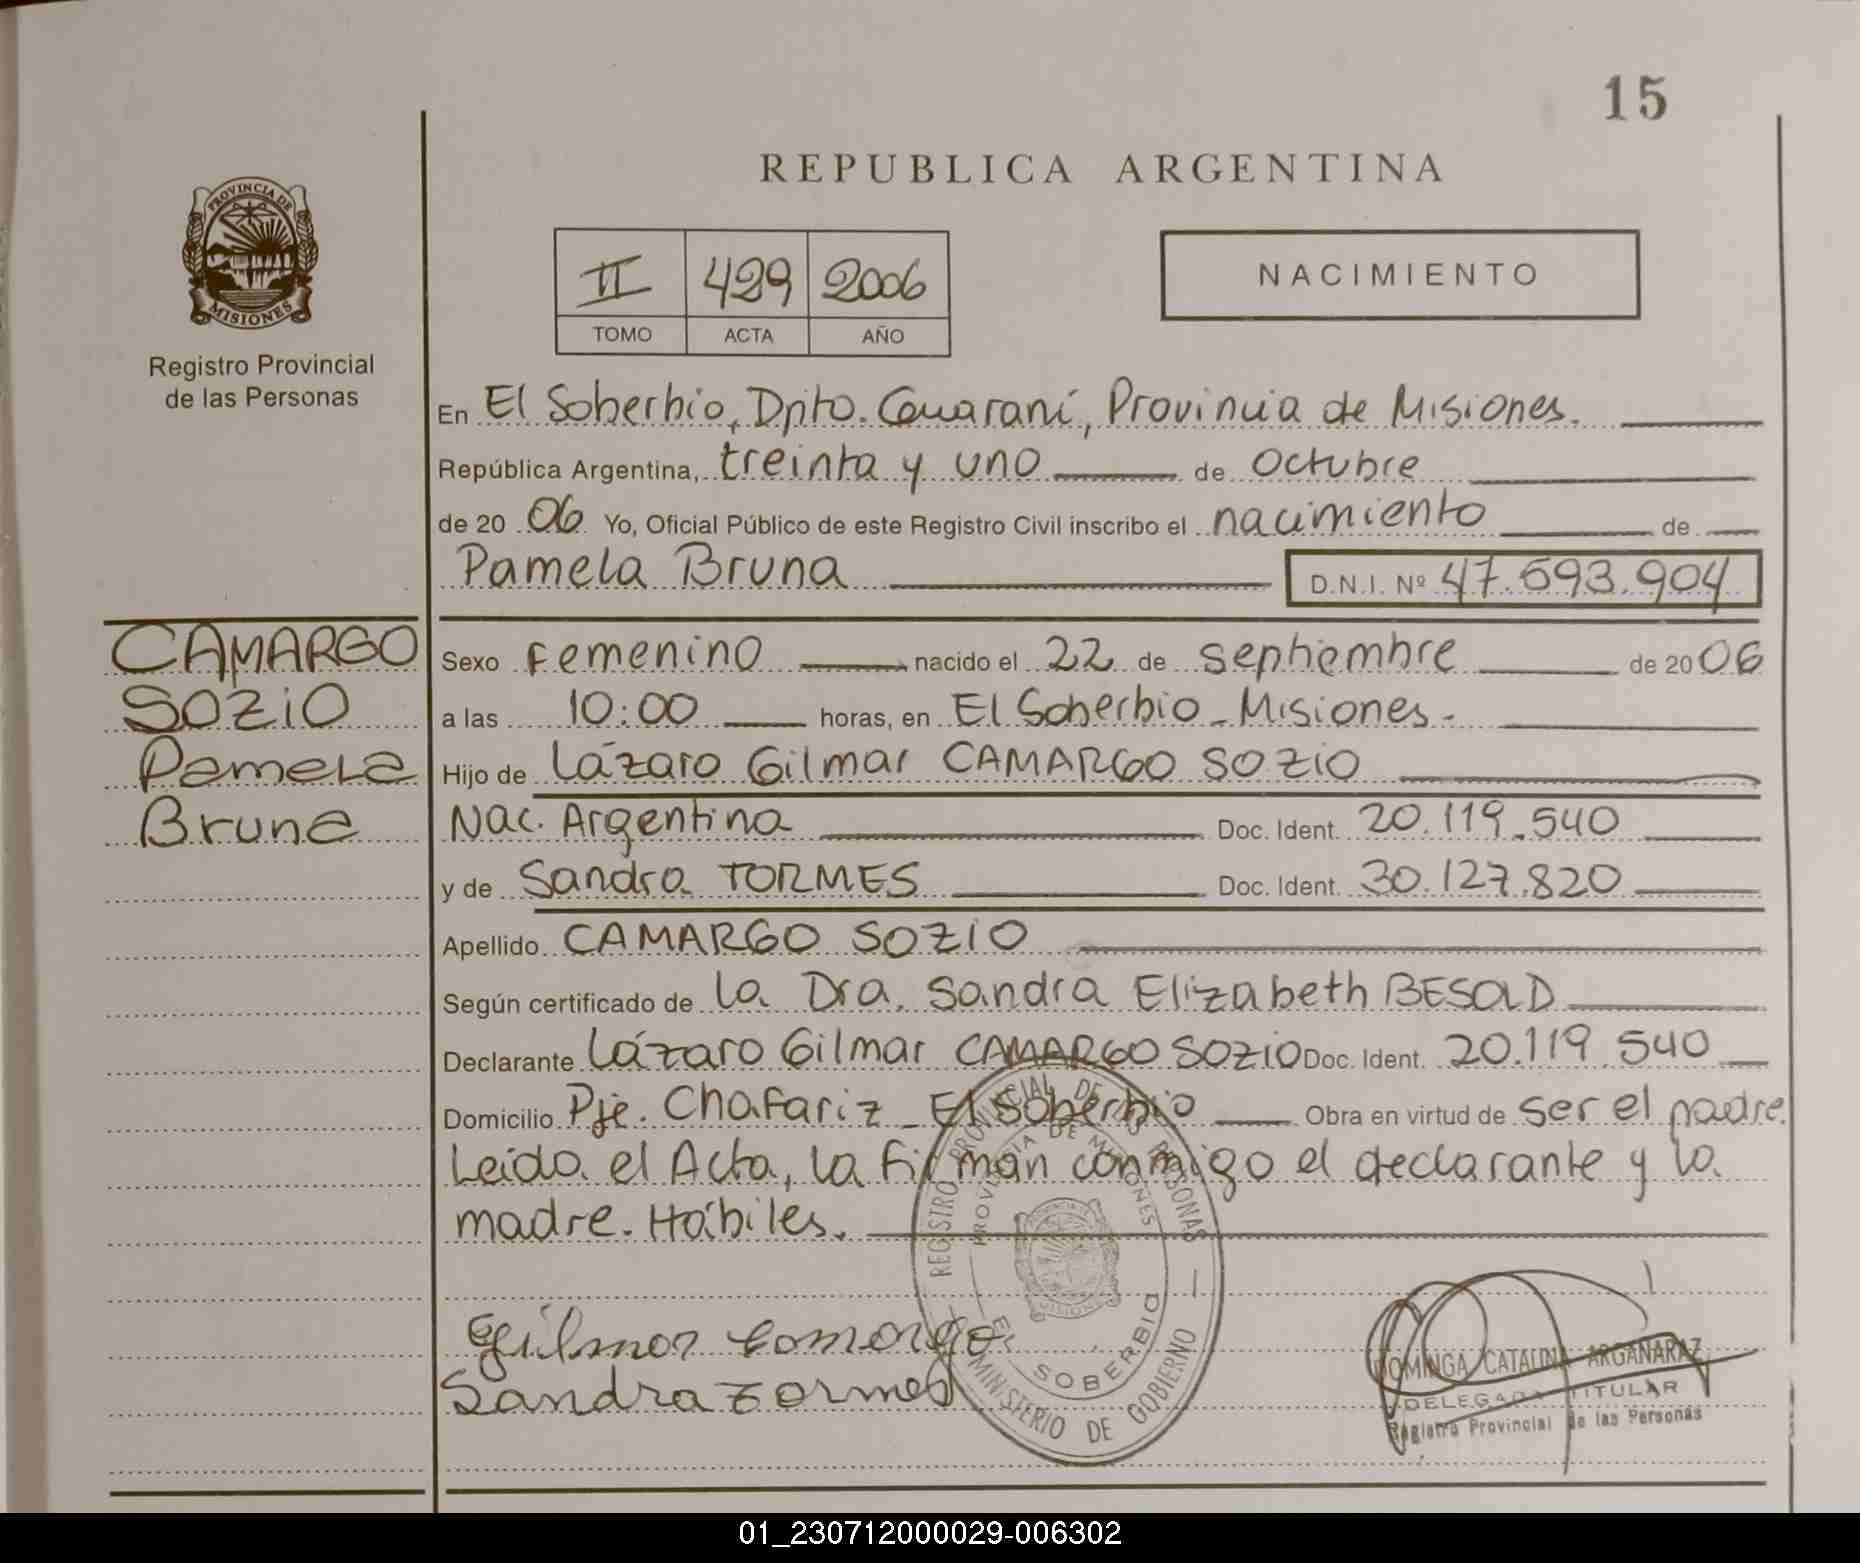 15
REPUBLICA ARGENTINA
PROVINCIA DE
MISIONES
Registro Provincial
de las Personas
II 429 2006
TOMO ACTA AÑO
NACIMIENTO
En El Soberbio, Dpto. Guaraní, Provincia de Misiones.
República Argentina, treinta y uno de Octubre
de 20 06 Yo, Oficial Público de este Registro Civil inscribo el nacimiento de
Pamela Bruna D.N.I. Nº 47.693.904
CAMARGO
SOZIO
Pamela
Bruna
Sexo Femenino nacido el 22 de septiembre de 20 06
a las 10:00 horas, en El Soberbio - Misiones.
Hijo de Lázaro Gilmar CAMARGO SOZIO
Nac. Argentina Doc. Ident. 20.119.540
y de Sandra TORMES Doc. Ident. 30.127.820
Apellido CAMARGO SOZIO
Según certificado de la Dra. Sandra Elizabeth BESOLD
Declarante Lázaro Gilmar CAMARGO SOZIO Doc. Ident. 20.119.540
Domicilio Pje. Chafariz - El Soberbio Obra en virtud de ser el padre.
Leída el Acta, la firman conmigo el declarante y la
madre. Hábiles.
Gilmar Camargo
Sandra Tormes
REGISTRO PROVINCIAL DE LAS PERSONAS
PROVINCIA DE MISIONES
MISIONES
EL SOBERBIO
MINISTERIO DE GOBIERNO
DOMINGA CATALINA ARGAÑARAZ
DELEGADA TITULAR
Registro Provincial de las Personas
01_230712000029-006302